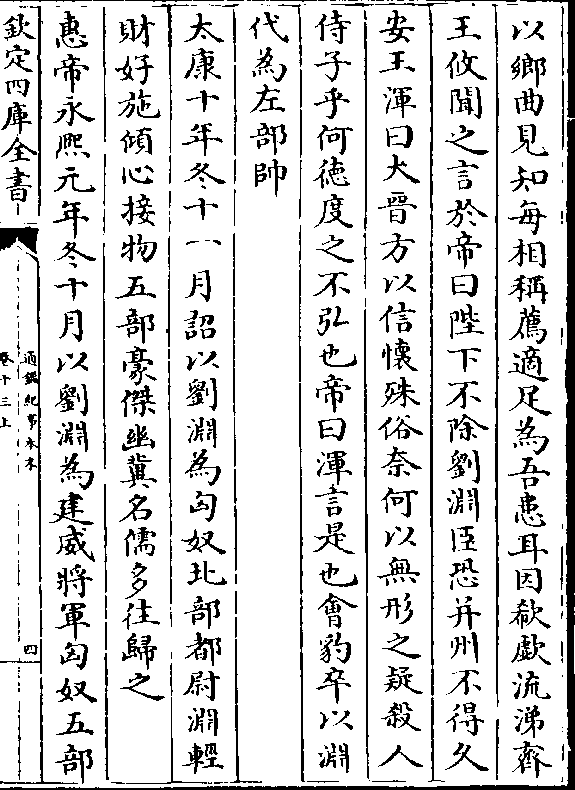 以鄉曲見知每相稱薦適足為吾患耳因欷歔流涕齊
王攸聞之言於帝曰陛下不除劉淵臣恐并州不得久
安王渾曰大晉方以信懷殊俗奈何以無形之疑殺人
侍子乎何徳度之不弘也帝曰渾言是也會豹卒以淵
代為左部帥
太康十年冬十一月詔以劉淵為匈奴北部都尉淵輕
財好施傾心接物五部豪傑幽冀名儒多往歸之
惠帝永熈元年冬十月以劉淵為建威將軍匈奴五部
欽定四庫全書
通鑑紀事本末
卷十三上
四